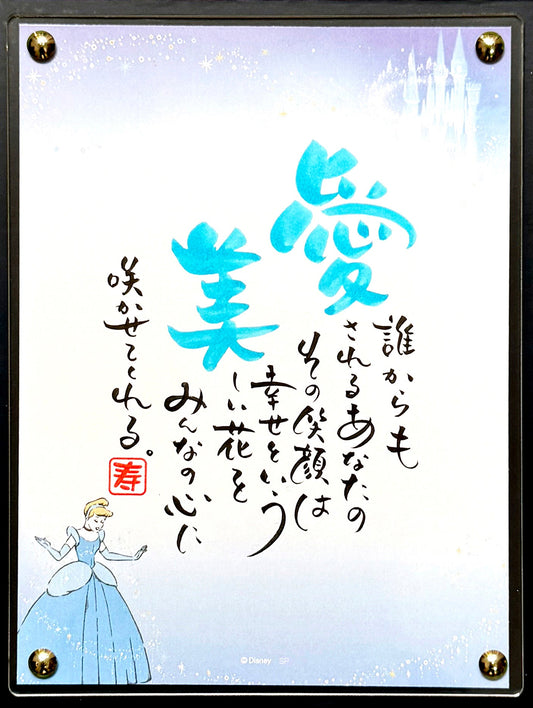 誰からも
愛されるあなたの
その笑顔は
幸せという
美しい花を
みんなの心に
咲かせてくれる。
寿
© Disney SP